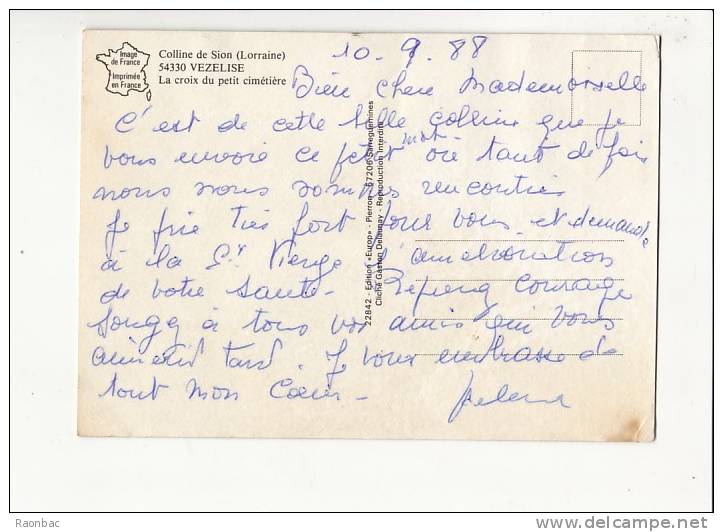 Image
de France
Imprimée
en France
Colline de Sion (Lorraine)
54330 VEZELISE
La croix du petit cimétière
10 . 9 . 88
Bien chere Mademoiselle
C'est de cette belle colline que je
vous envoie ce petit mot ou tant de fois
nous nous sommes rencontrés
Je prie tres fort pour vous et demande
à la Ste Vierge l'amelioration
de votre Santé - Reprenez Courage
Songez à tous vos amis qui vous
aiment tant. Je vous embrasse de
tout mon Coeur -
22842 - Edition «Europ» - Pierron - 57206 Sarreguemines
Cliché Gaston Delaunay - Reproduction Interdite
Posted by
Raonbac
www.delcampe.net